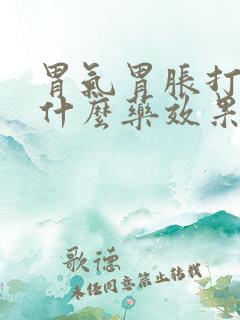 胃氣胃脹打
什麼藥效果
歌德
未經同意禁止轉載